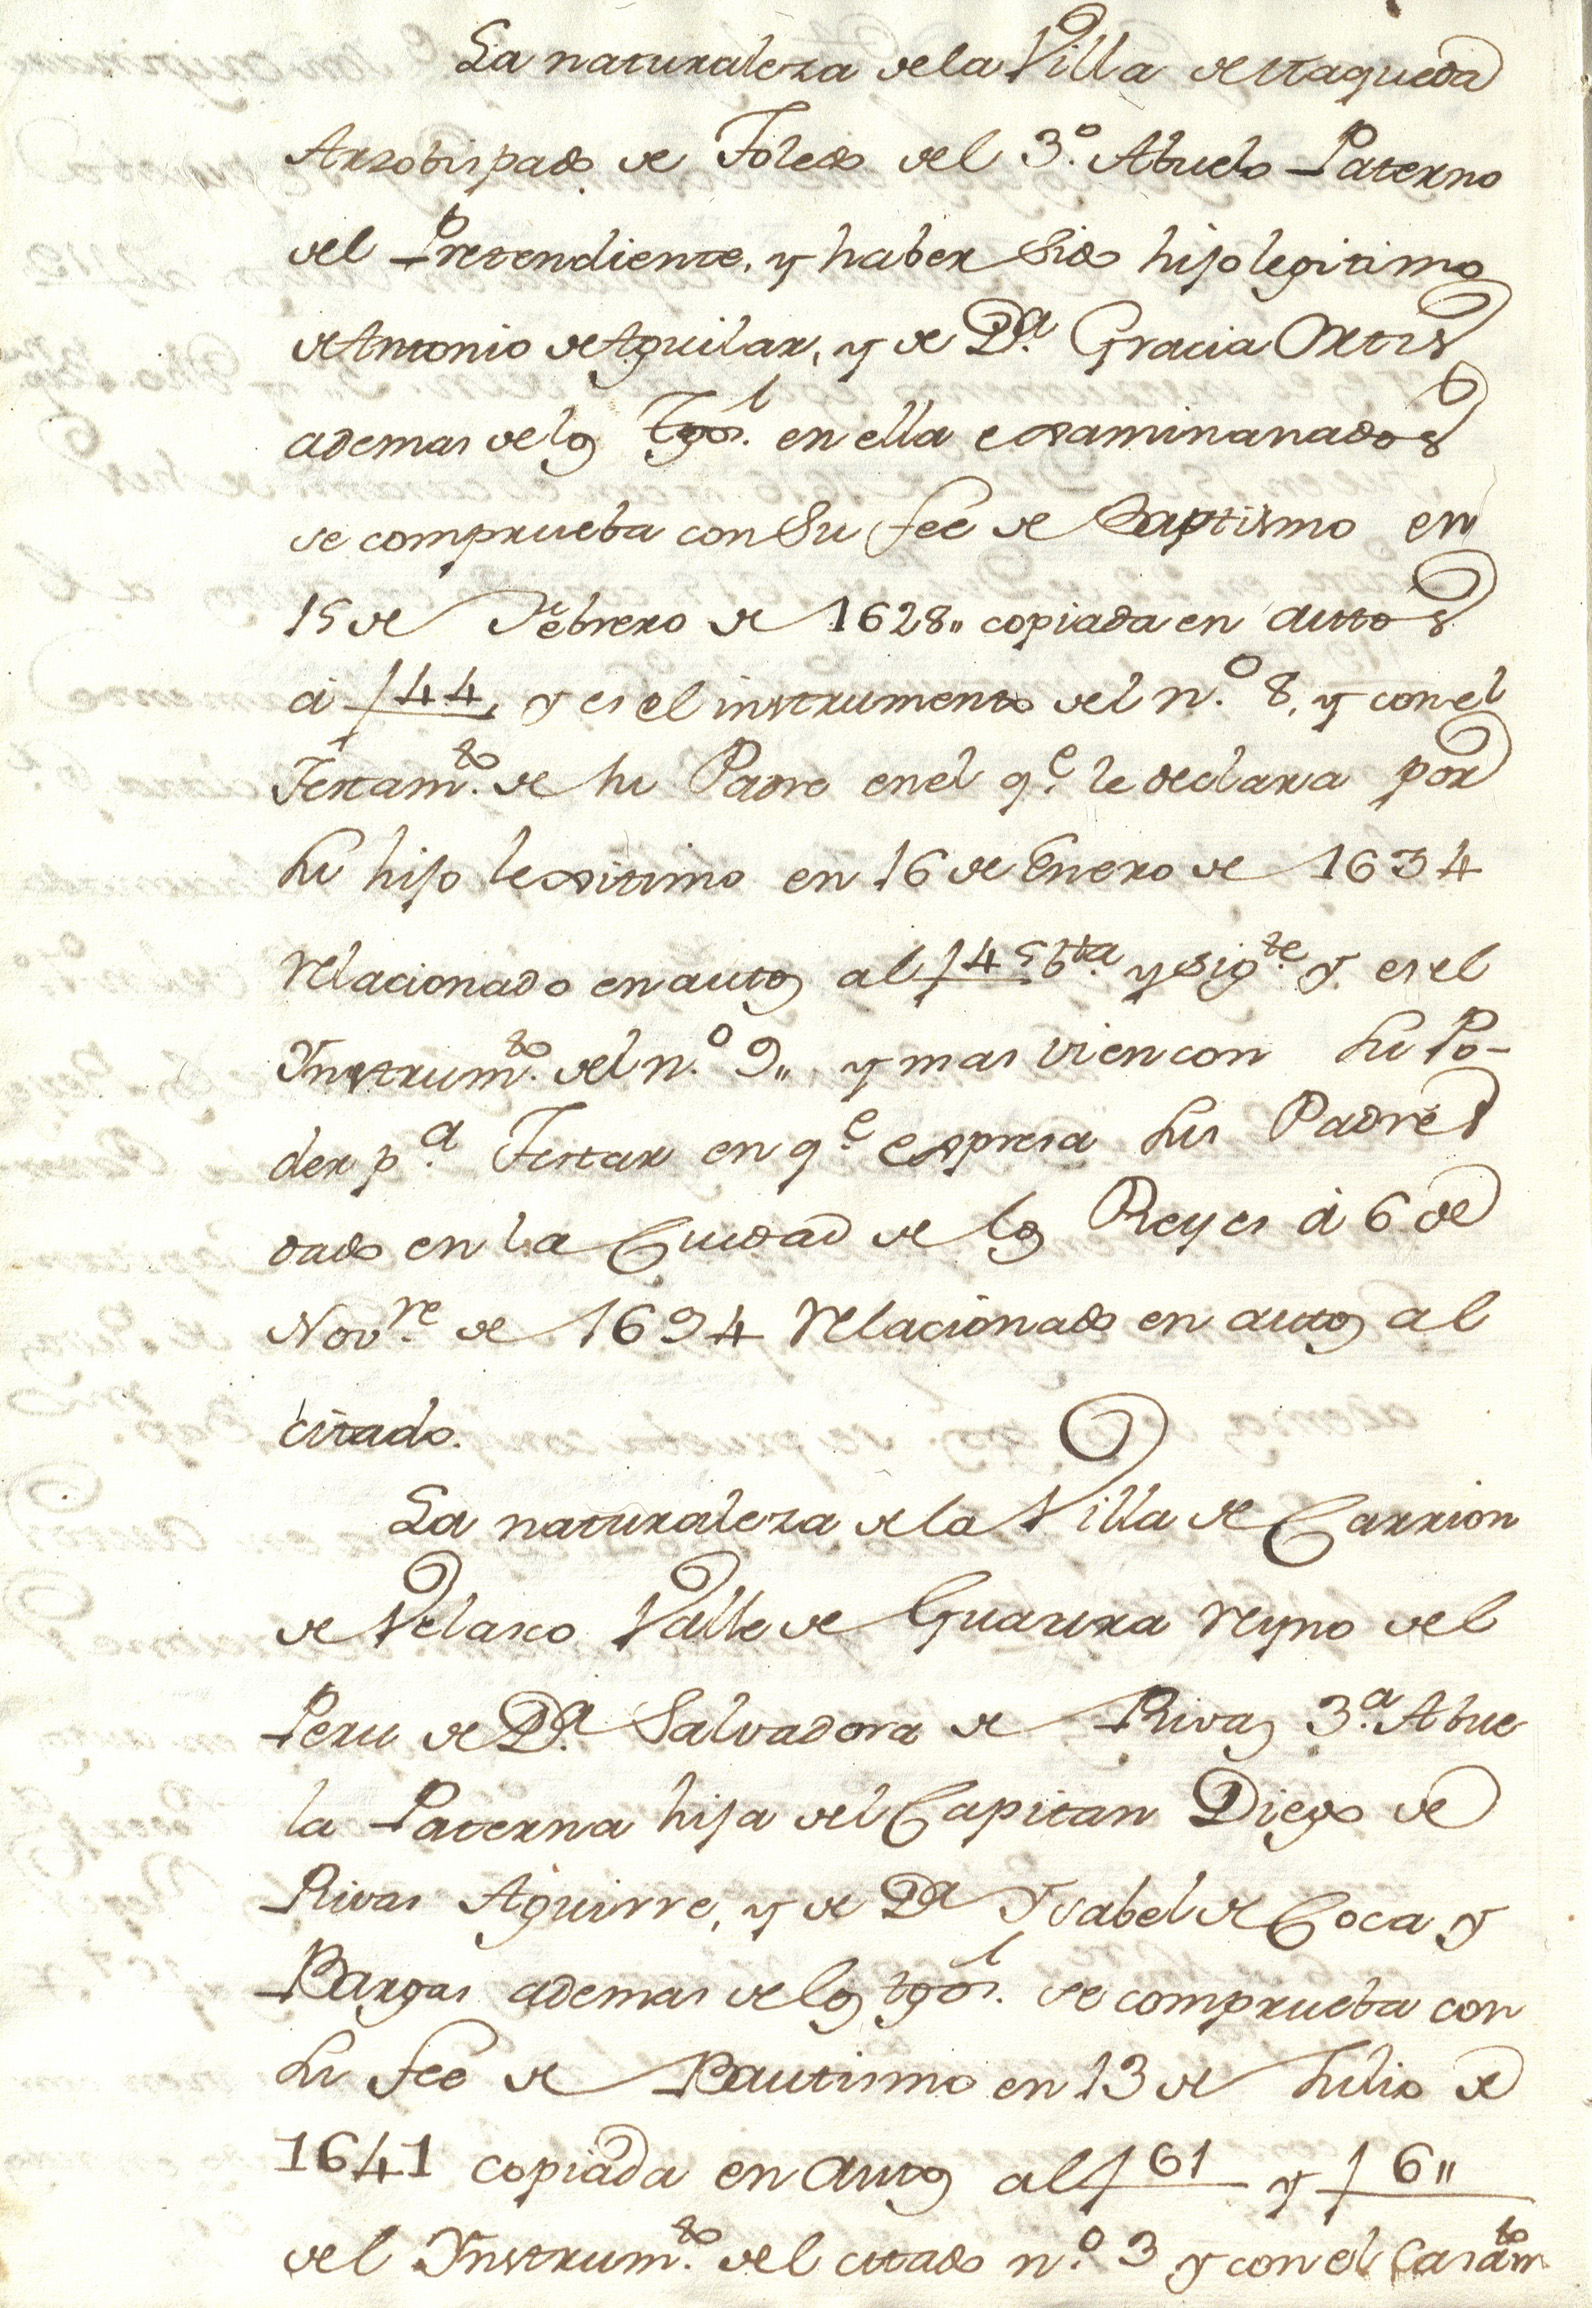 La naturaleza de la Villa de Maqueda
Arzobispado de Toledo del 3.º Abuelo Paterno
del Pretendiente, y haber sido hijo legitimo
de Antonio de Aguilar, y de D.ª Gracia Ortis
ademas de los tgos. en ella examinanados
se comprueba con su feé de Baptismo en
15 de Febrero de 1628,, copiada en auttos
á f 44, y es el instrumento del n.º 8, y con el
Testam.to de su Padre en el q.e le declara por
su hijo lexitimo en 16 de Enero de 1634
relacionado en autos al f 45 bta. y sig.te y es el
Ynstrum.to del n.º 9,, y mas vien con su Po-
der p.a Testar en q.e expresa sus Padres
dado en la Ciudad de los Reyes á 6 de
Nov.re de 1694 relacionado en autos al
citado.
La naturaleza de la Villa de Carrion
de Velasco Valle de Guaura reyno del
Peru de D.ª Salvadora de Rivas 3.ª Abue
la Paterna hija del Capitan Diego de
Rivas Aguirre, y de Dª Ysabel de Coca y
Bargas ademas de los tgos. se comprueba con
su feé de Bautismo en 13 de Julio de
1641 copiada en autos al f 61 y f 6,,
del Ynstrum.to del citado n.º 3 y con el Casam.to